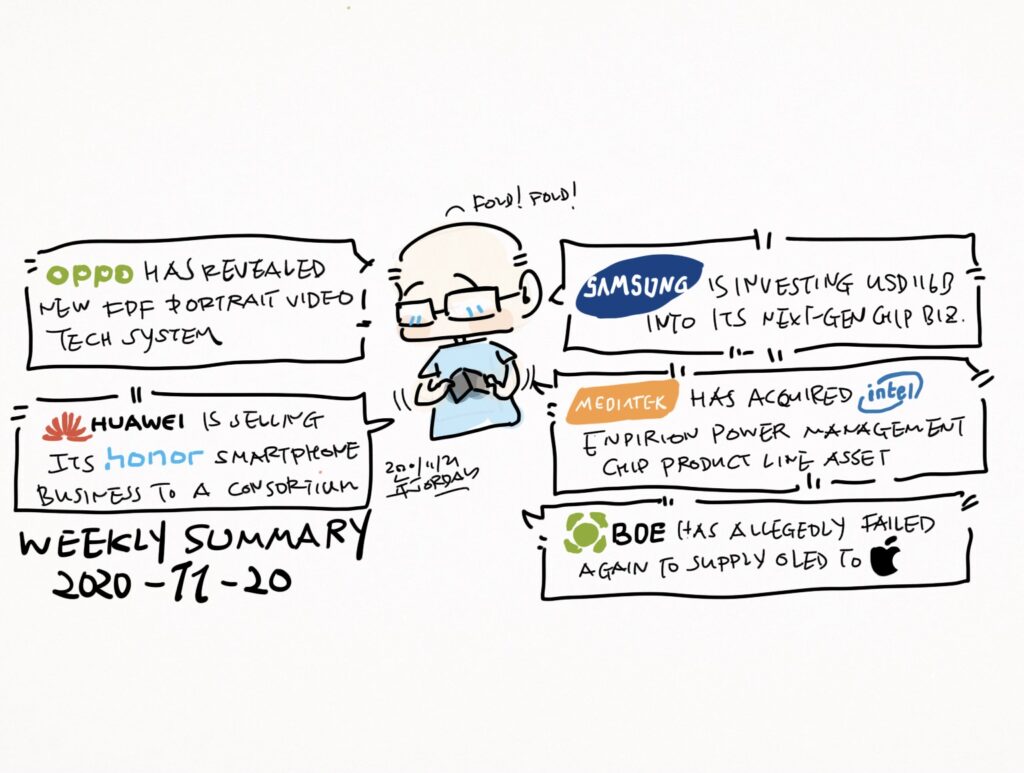 FOLD! FOLD!
oppo HAS REVEALED
NEW FDF PORTRAIT VIDEO
TECH SYSTEM
HUAWEI IS SELLING
ITS honor SMARTPHONE
BUSINESS TO A CONSORTIUM
WEEKLY SUMMARY
2020-11-20
SAMSUNG IS INVESTING USD116B
INTO ITS NEXT-GEN CHIP BIZ.
MEDIATEK HAS ACQUIRED intel
ENPIRION POWER MANAGEMENT
CHIP PRODUCT LINE ASSET
BOE HAS ALLEGEDLY FAILED
AGAIN TO SUPPLY OLED TO